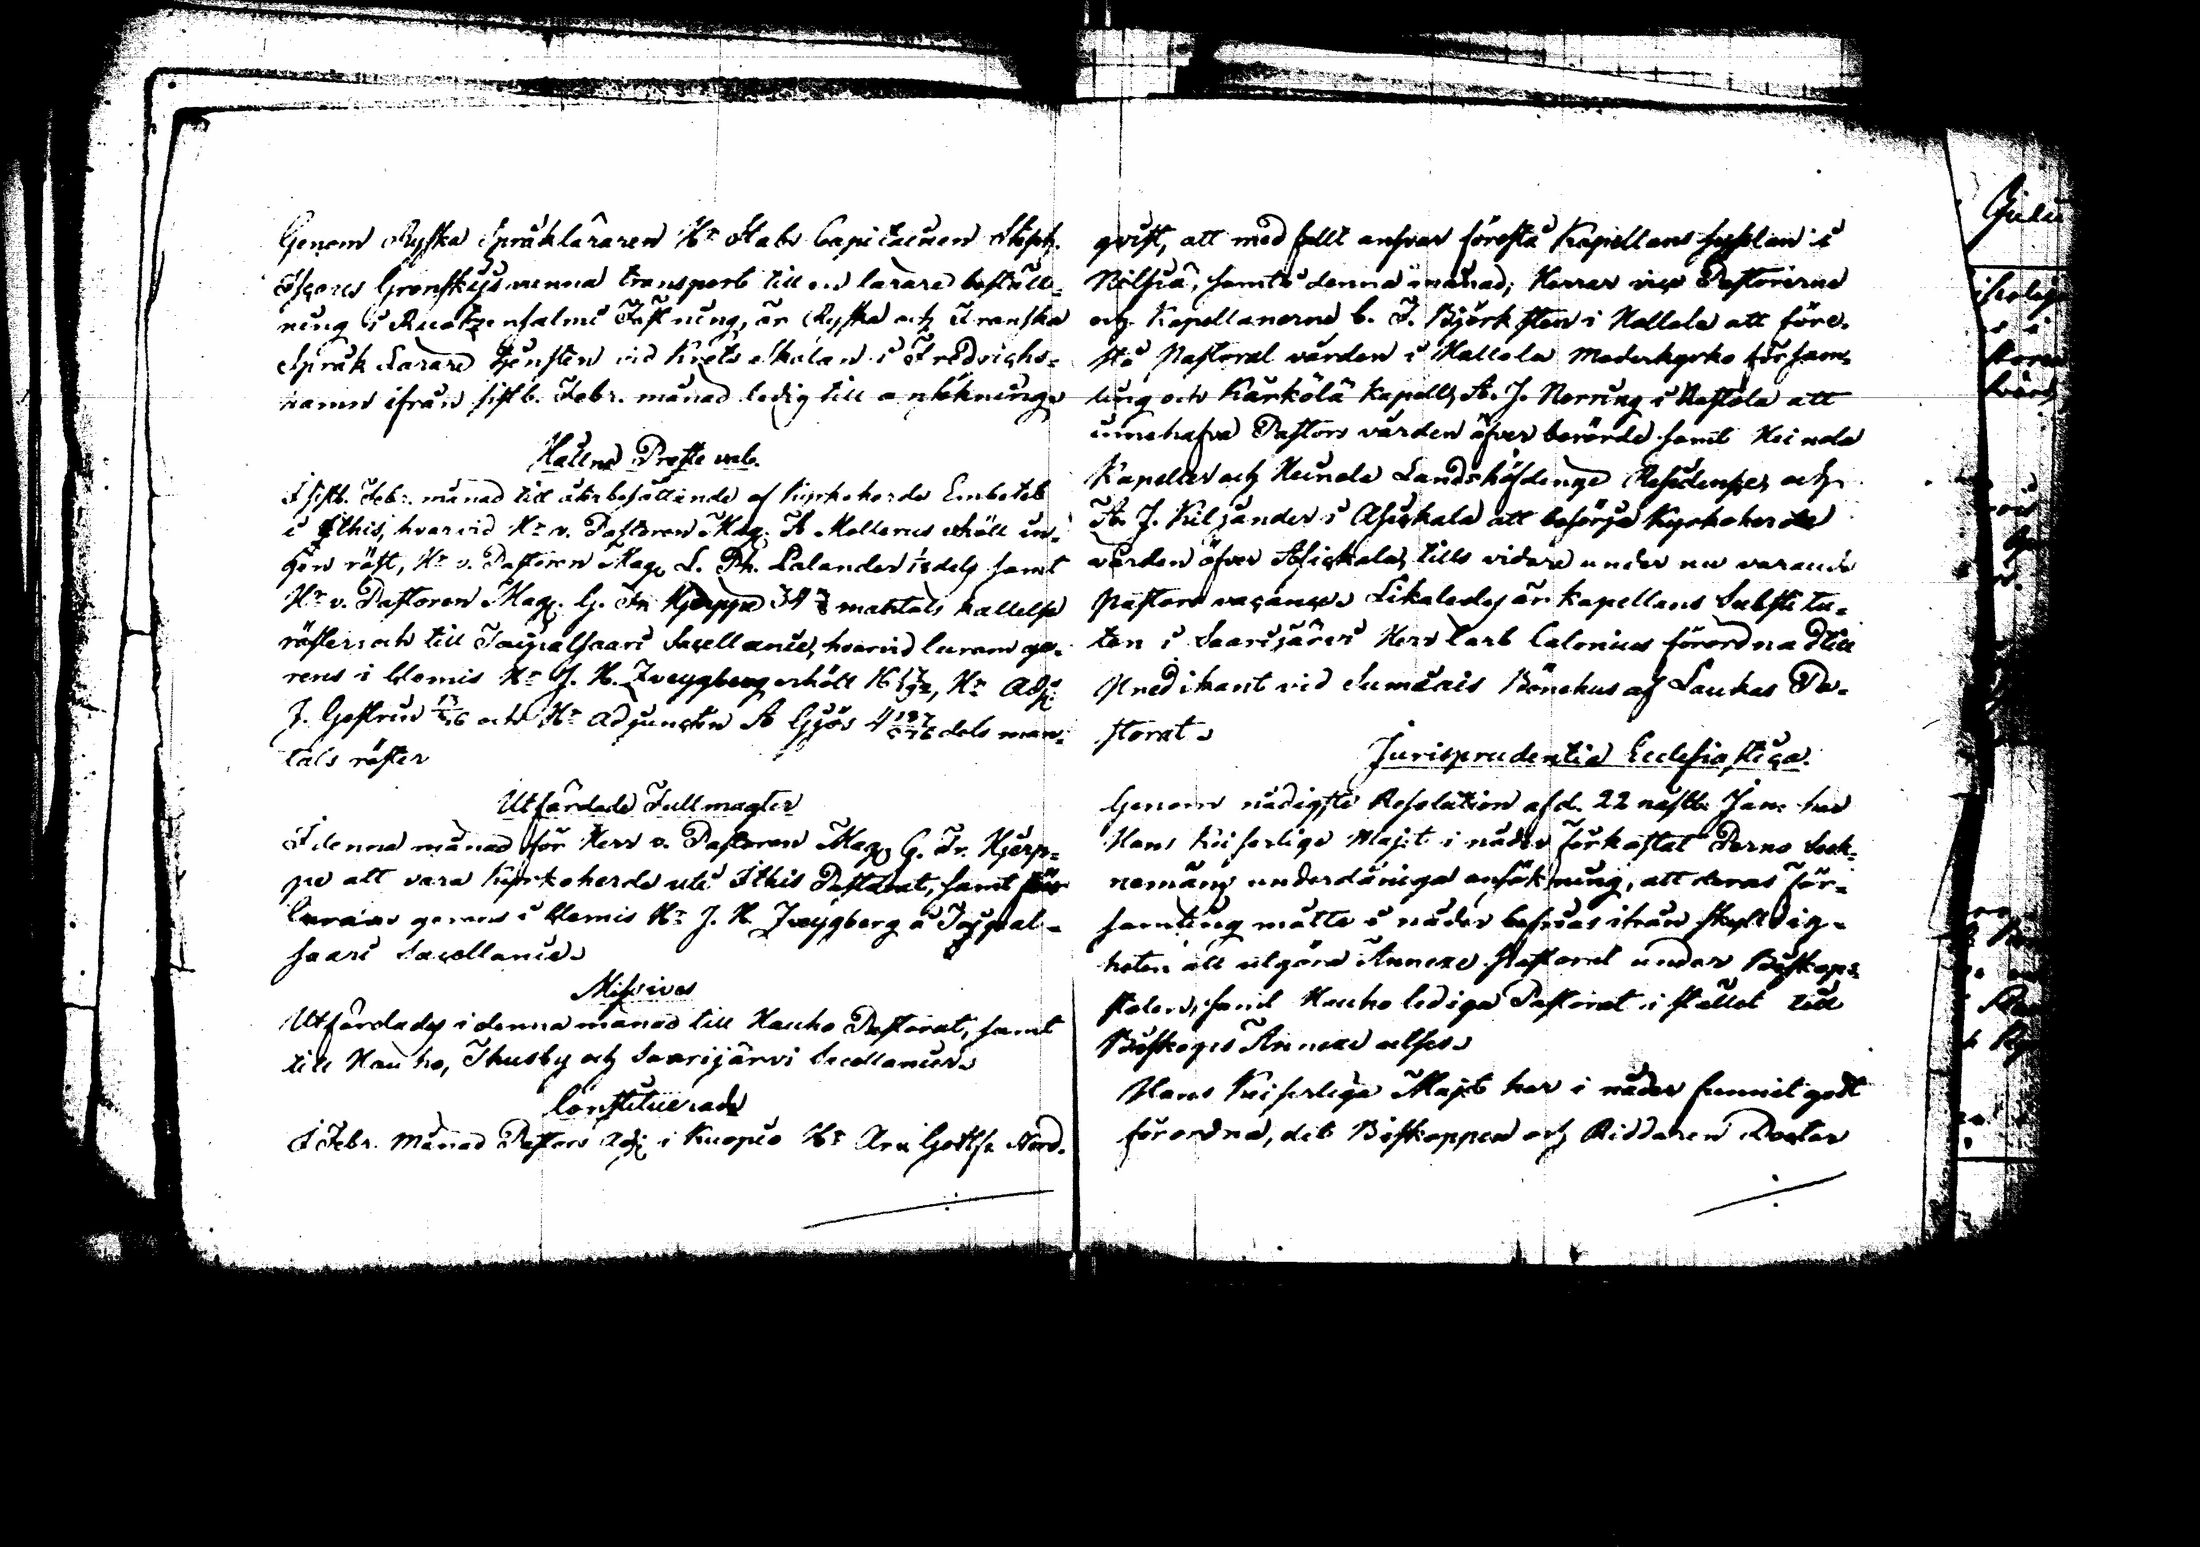 Genom Ryska Språkläraren Hr Stabs Capitainen Steph.
Grenskijs vunna transport till en lärare beställ-
ning i Ruotzensalmi Fästning, är Ryska och Franska
Språk Lärare tjensten vid Krets Skolan i Fredrichs-
hamn ifrån sistl. Febr. månad ledig till ansökning.
Hållne Preste val.
I sistl. Febr. månad till återbesättande af Kyrkoherde Embetet
i Ithis, hvarvid Hr v. Pastoren Mag. A Mollerus erhöll in-
gen röst, Hr v. Pastoren Mag. L. Th. Lalander 1/8 dels samt
Hr v. Pastoren Mag. G. Fr. Hjerppe 34 7/8 mantals kallelse
röster; och till Taipalsaari Sacellanie, hvarvid luram ge-
rens i Klemis Hr J. H. Zweygberg erhöll 16, Hr Adj.
J. Gestrin och Hr Adjuncten A Gyös 4 dels man-
tals röster
Utfärdade Fullmagter
I denna månad för Herr v. Pastoren Mag. G. Fr. Hjerp-
pe att vara Kyrkoherde uti Ithis Pastorat, samt för
gerens i Klemis Hr J. H. Zweygberg å Taypal-
saari Sacellanie.
Missiver
Utfärdades i denna månad till Hauho Pastorat, samt
till Hauho, Thusby och Saarijärvi Sacellanier.
Constituerade
I Febr. månad Pastors Adj. i Kuopio Hr Ar. Gottfr. Nord-
qvist, att med fullt ansvar förestå Kapellans sysslan i
Nilsiä, samt i denna månad, Herrar vice Pastorerne
och Kapellanerne C. J. Björksten i Hollola att före-
stå Pastoral vården i Hollola Moderkyrko försam-
ling och Kärkölä kapell, A. J. Norring i Nastola att
innehafva Pastors vården öfver berörde samt Heinola
Kapeller och Heinola Landshöfdinge Residence, och
A. J. Kiljander i Asickala att besörja Kyrkoherde
vården öfver Asickala, tills vidare under nu varande
Pastors vacance. Likaledes är kapellans Substitu-
ten i Saarijärvi Herr Carl Calonius förordnad till
Predikant vid Sumiais Bönehus af Laukas Pa-
storat.
Jurisprudentia Ecclesiastica.
Genom nådigste Resolution af d. 22 nästl. Jan. har
Hans Keiserliga Majt i nåder förkastat Perno Sock-
nemäns underdåniga ansökning, att deras För-
samling måtte i nåder befrias ifrån skyldig-
heten att utgöra Annexe Pastorat under Biskops-
stolen, samt Hauho lediga Pastorat i stället till
Biskopes Annexe
Hans Keiserliga Majt har i nåder funnit godt
förordna, det Biskoppen och Riddaren Doctor